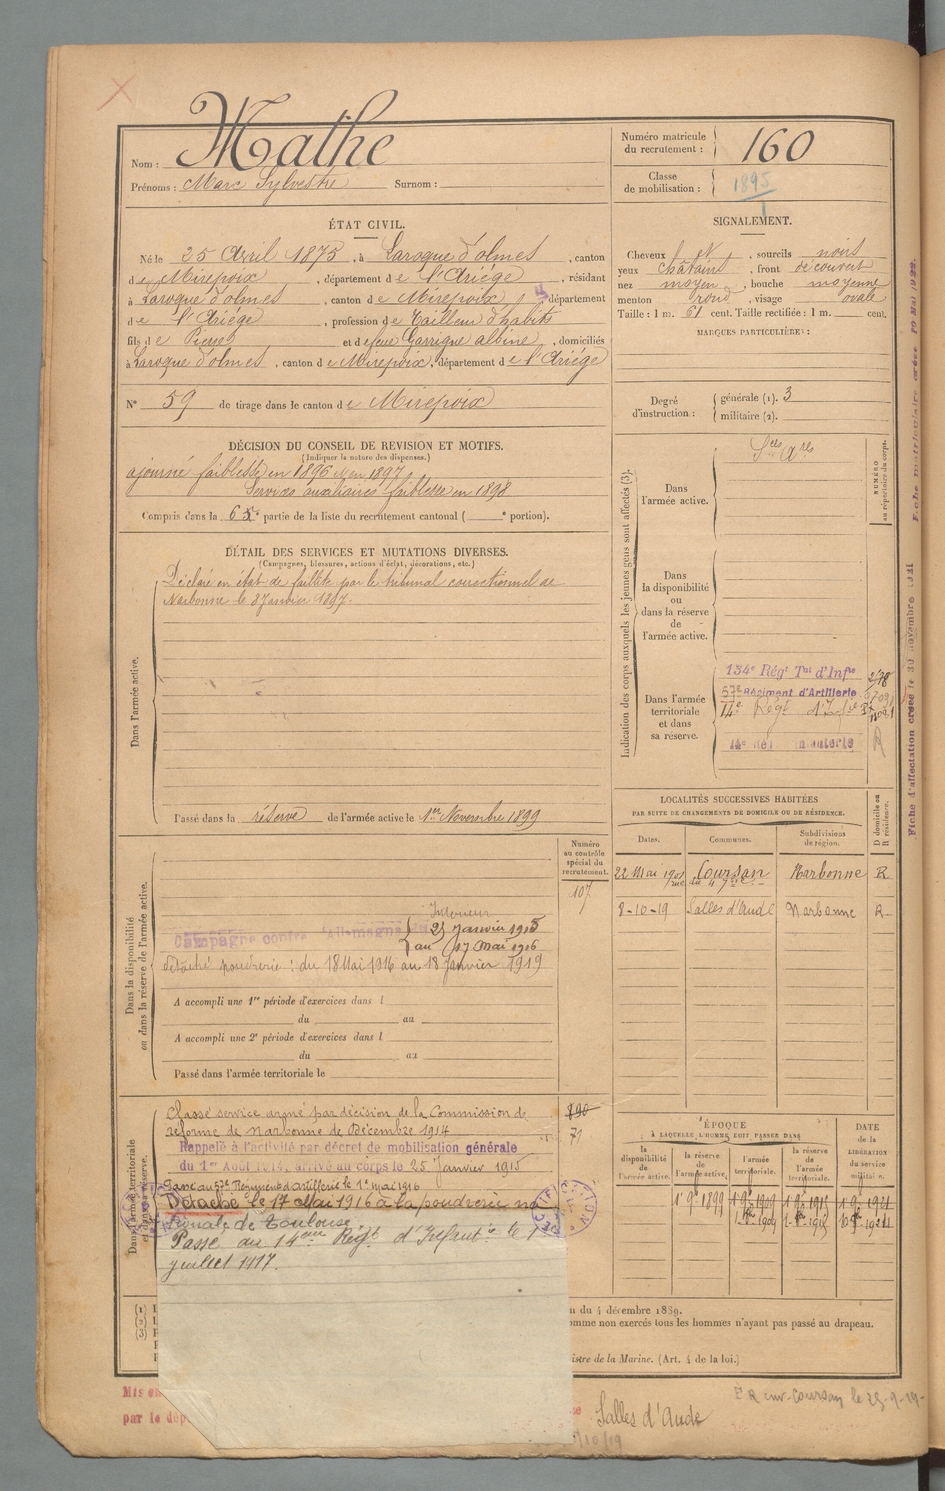 Nom : Mathe
Prénoms : Marc Sylvestre Surnom :
Numéro matricule du recrutement : 160
Classe de mobilisation : 1895
ÉTAT CIVIL.
Né le 25 Avril 1875, à Laroque d'olmes, canton
de Mirepoix, département de l'Ariége, résidant
à Laroque d'olmes, canton de Mirepoix, département
de l'Ariége, profession de Tailleur d'habits
fils de Pierre et de feue Garrigue Albine, domiciliés
à Laroque d'olmes, canton de Mirepoix, département de l'Ariége
N° 59 de tirage dans le canton de Mirepoix
SIGNALEMENT.
Cheveux N, sourcils noirs
yeux châtains, front découvert
nez moyen, bouche moyenne
menton rond, visage ovale
Taille : 1 m. 61 cent. Taille rectifiée : 1 m. cent.
MARQUES PARTICULIÈRES :
Degré d'instruction : générale (1). 3
militaire (2).
DÉCISION DU CONSEIL DE REVISION ET MOTIFS.
(Indiquer la nature des dispenses.)
ajourné faiblesse en 1896 et en 1897
Services auxiliaires faiblesse en 1898
Compris dans la 6e partie de la liste du recrutement cantonal ( e portion).
DÉTAIL DES SERVICES ET MUTATIONS DIVERSES.
(Campagnes, blessures, actions d'éclat, décorations, etc.)
Dans l'armée active.
Déclaré en état de faillite par le tribunal correctionnel de
Narbonne le 8 Janvier 1897
Passé dans la réserve de l'armée active le 1er Novembre 1899
Indication des corps auxquels les jeunes gens sont affectés (3).
NUMÉRO au répertoire du corps.
Dans l'armée active.
Sces Ares
Dans la disponibilité ou dans la réserve de l'armée active.
Dans l'armée territoriale et dans sa réserve.
134e Régt Tal d'Infie
57e Régiment d'Artillerie
14e Régt d'Infie
LOCALITÉS SUCCESSIVES HABITÉES
PAR SUITE DE CHANGEMENTS DE DOMICILE OU DE RÉSIDENCE.
Dates. Communes. Subdivisions de région. D domicile ou R résidence.
22 Mai 1901 Coursan Narbonne R
8-10-19 Salles d'Aude Narbonne R
Dans la disponibilité ou dans la réserve de l'armée active.
Numéro au contrôle spécial du recrutement.
107
Intérieur
Campagne contre l'Allemagne 25 Janvier 1915
au 17 Mai 1916
détaché poudrerie : du 18 Mai 1916 au 18 Janvier 1919
A accompli une 1re période d'exercices dans l
du au
A accompli une 2e période d'exercices dans l
du au
Passé dans l'armée territoriale le
Dans l'armée territoriale et dans sa réserve.
Classé service armé par décision de la Commission de
réforme de Narbonne de Décembre 1914
Rappelé à l'activité par décret de mobilisation générale
du 1er Août 1914, arrivé au corps le 25 Janvier 1915
Passé au 57e Régiment d'artillerie le 1er mai 1916
Détaché le 17 Mai 1916 à la poudrerie na
tionale de Toulouse.
Passé au 14eme Régt d'Infantie le 1
juillet 1917.
71
ÉPOQUE
À LAQUELLE L'HOMME DOIT PASSER DANS
la disponibilité de l'armée active.
la réserve de l'armée active.
l'armée territoriale.
la réserve de l'armée territoriale.
DATE de la LIBÉRATION du service militaire.
1er 9bre 1899
n du 4 décembre 1889.
omme non exercés tous les hommes n'ayant pas passé au drapeau.
istre de la Marine. (Art. 4 de la loi.)
(1)
(2)
(3)
Mis en
par le dép
Salles d'Aude
Coursan le 25-9-19
Fiche d'affectation créée le 30 novembre
Fiche matriculaire créée 10 Mai 1922